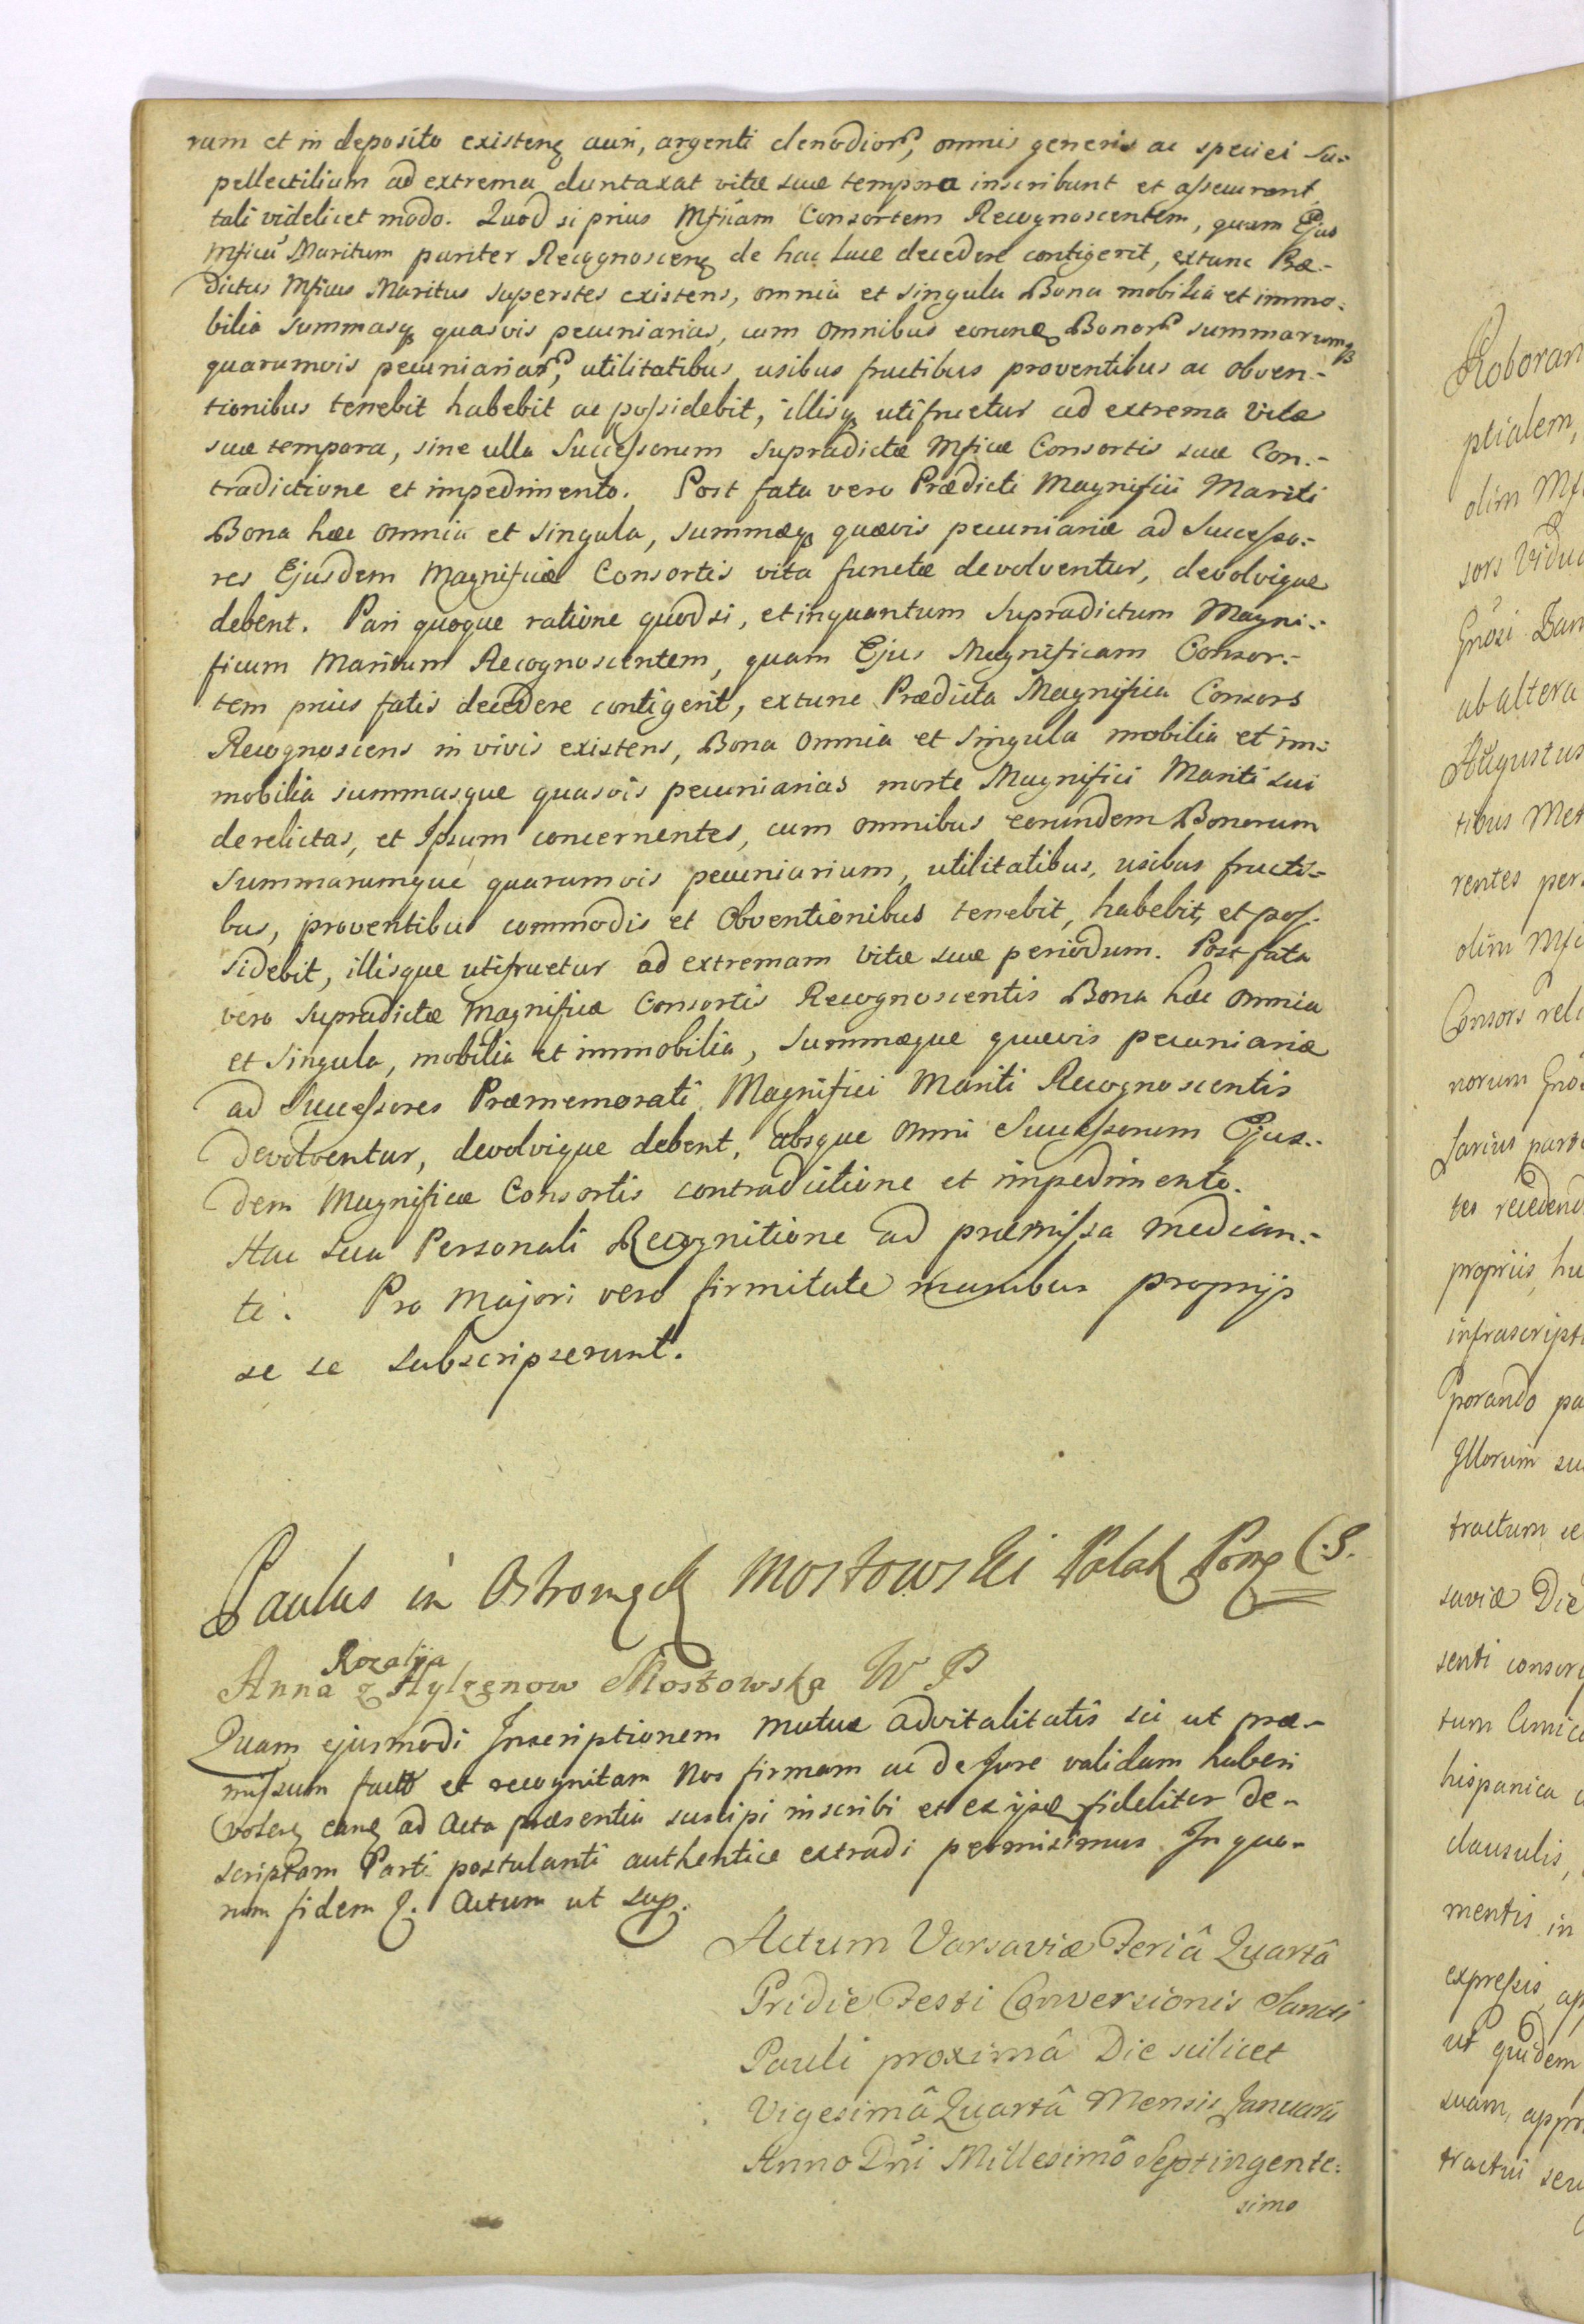 rum et in deposito existenz auri, argenti clenodior, omnis generis ac speciei su:
pellectilium ad extrema duntaxat vitæ suæ tempora inscribunt et assecurant,
tali videlicet modo. Quod si prius Mficam Consortem Recognoscentem, quam Ejus
Mficu Maritum pariter Recognoscenz de hac luce decedere contigerit, extunc Præ:-
dictus Mficus Maritus superstes existens, omnia et singula Bona mobilia et immo:
bilia summasq quasvis pecuniarias, cum omnibus eorunz Bonor summarumq
quarumvis pecuniariar, utilitatibus, usibus fructibus proventibus ac obven:-
tionibus tenebit habebit ac possidebit, illisq utifruetur ad extrema Vitæ
suæ tempora, sine ulla Successorum supradictæ Mficæ Consortis suæ Con:-
tradictione et impedimento. Post fata vero Prædicti Magnifici Mariti
Bona hæc omnia et singula, summæq quævis pecuniariæ ad Successo:-
res Ejusdem Magnificæ Consortis vita functæ devolventur, devolvique
debent. Pari quoque ratione quodsi, et inquantum supradictum Magni:-
ficum Maritum Recognoscentem, quam Ejus Magnificam Consor:-
tem prius fatis decedere contigerit, extunc Prædicta Magnifica Consors
Recognoscens in vivis existens, Bona omnia et singula mobilia et im:
mobilia summasque quasvis pecuniarias morte Magnifici Mariti sui
derelictas, et Ipsum concernentes, cum omnibus eorundem Bonorum
summarumque quarumvis pecuniarium, utilitatibus, usibus fructi-
bus, proventibus commodis et obventionibus tenebit, habebit, et pos-
sidebit, illisque utifruetur ad extremam vitæ suæ periodum. Post fata
vero supradictæ Magnificæ Consortis Recognoscentis Bona hæc omnia
et singula, mobilia et immobilia, summæque quævis pecuniariæ
ad Successores Præmemorati Magnifici Mariti Recognoscentis
devolventur, devolvique debent, absque omni Successorum Ejus:-
dem Magnificæ Consortis contradictione et impedimento.
Hac sua Personali Recognitione ad præmissa median:-
te. Pro Majori vero firmitate manibus proprijs
se se subscripserunt.
Paulus in Ostromęck Mostowski Palat Pom C.S.
Rozalija
Anna z Hylzenow Mostowska W P
Quam ejusmodi Inscriptionem mutuæ advitalitatis sci ut præ-
missum factu et recognitam Nos firmam ac de Jure validam haberi
volenz eanz ad Acta præsentia suscipi inscribi et ex ijsz fideliter de-
scriptam Parti postulanti authentice extradi permisimus. In quo-
rum fidem. Actum ut sup.
Actum Varsaviæ Feriâ Quartâ
Pridie Festi Conversionis Sancti
Pauli proximâ Die scilicet
Vigesimâ Quartâ Mensis Januarii
Anno Dni Millesimô Septingente:
simo
Roboran
ptialem,
olim Mfi
sors Vidu
Gnosi Dan
ab altera
Augustus
tibus Met
rentes per
olim Mfc
Consors reli
norum Gno
sarius parte
tes recedend
propriis, hu
infrascripti
porando pa
Illorum su
tractum
saviæ Die
senti conscr
tum Amica
hispanica
clausulis,
mentis in
expressis, ap
ut quidem
suam, appro
tractui seu